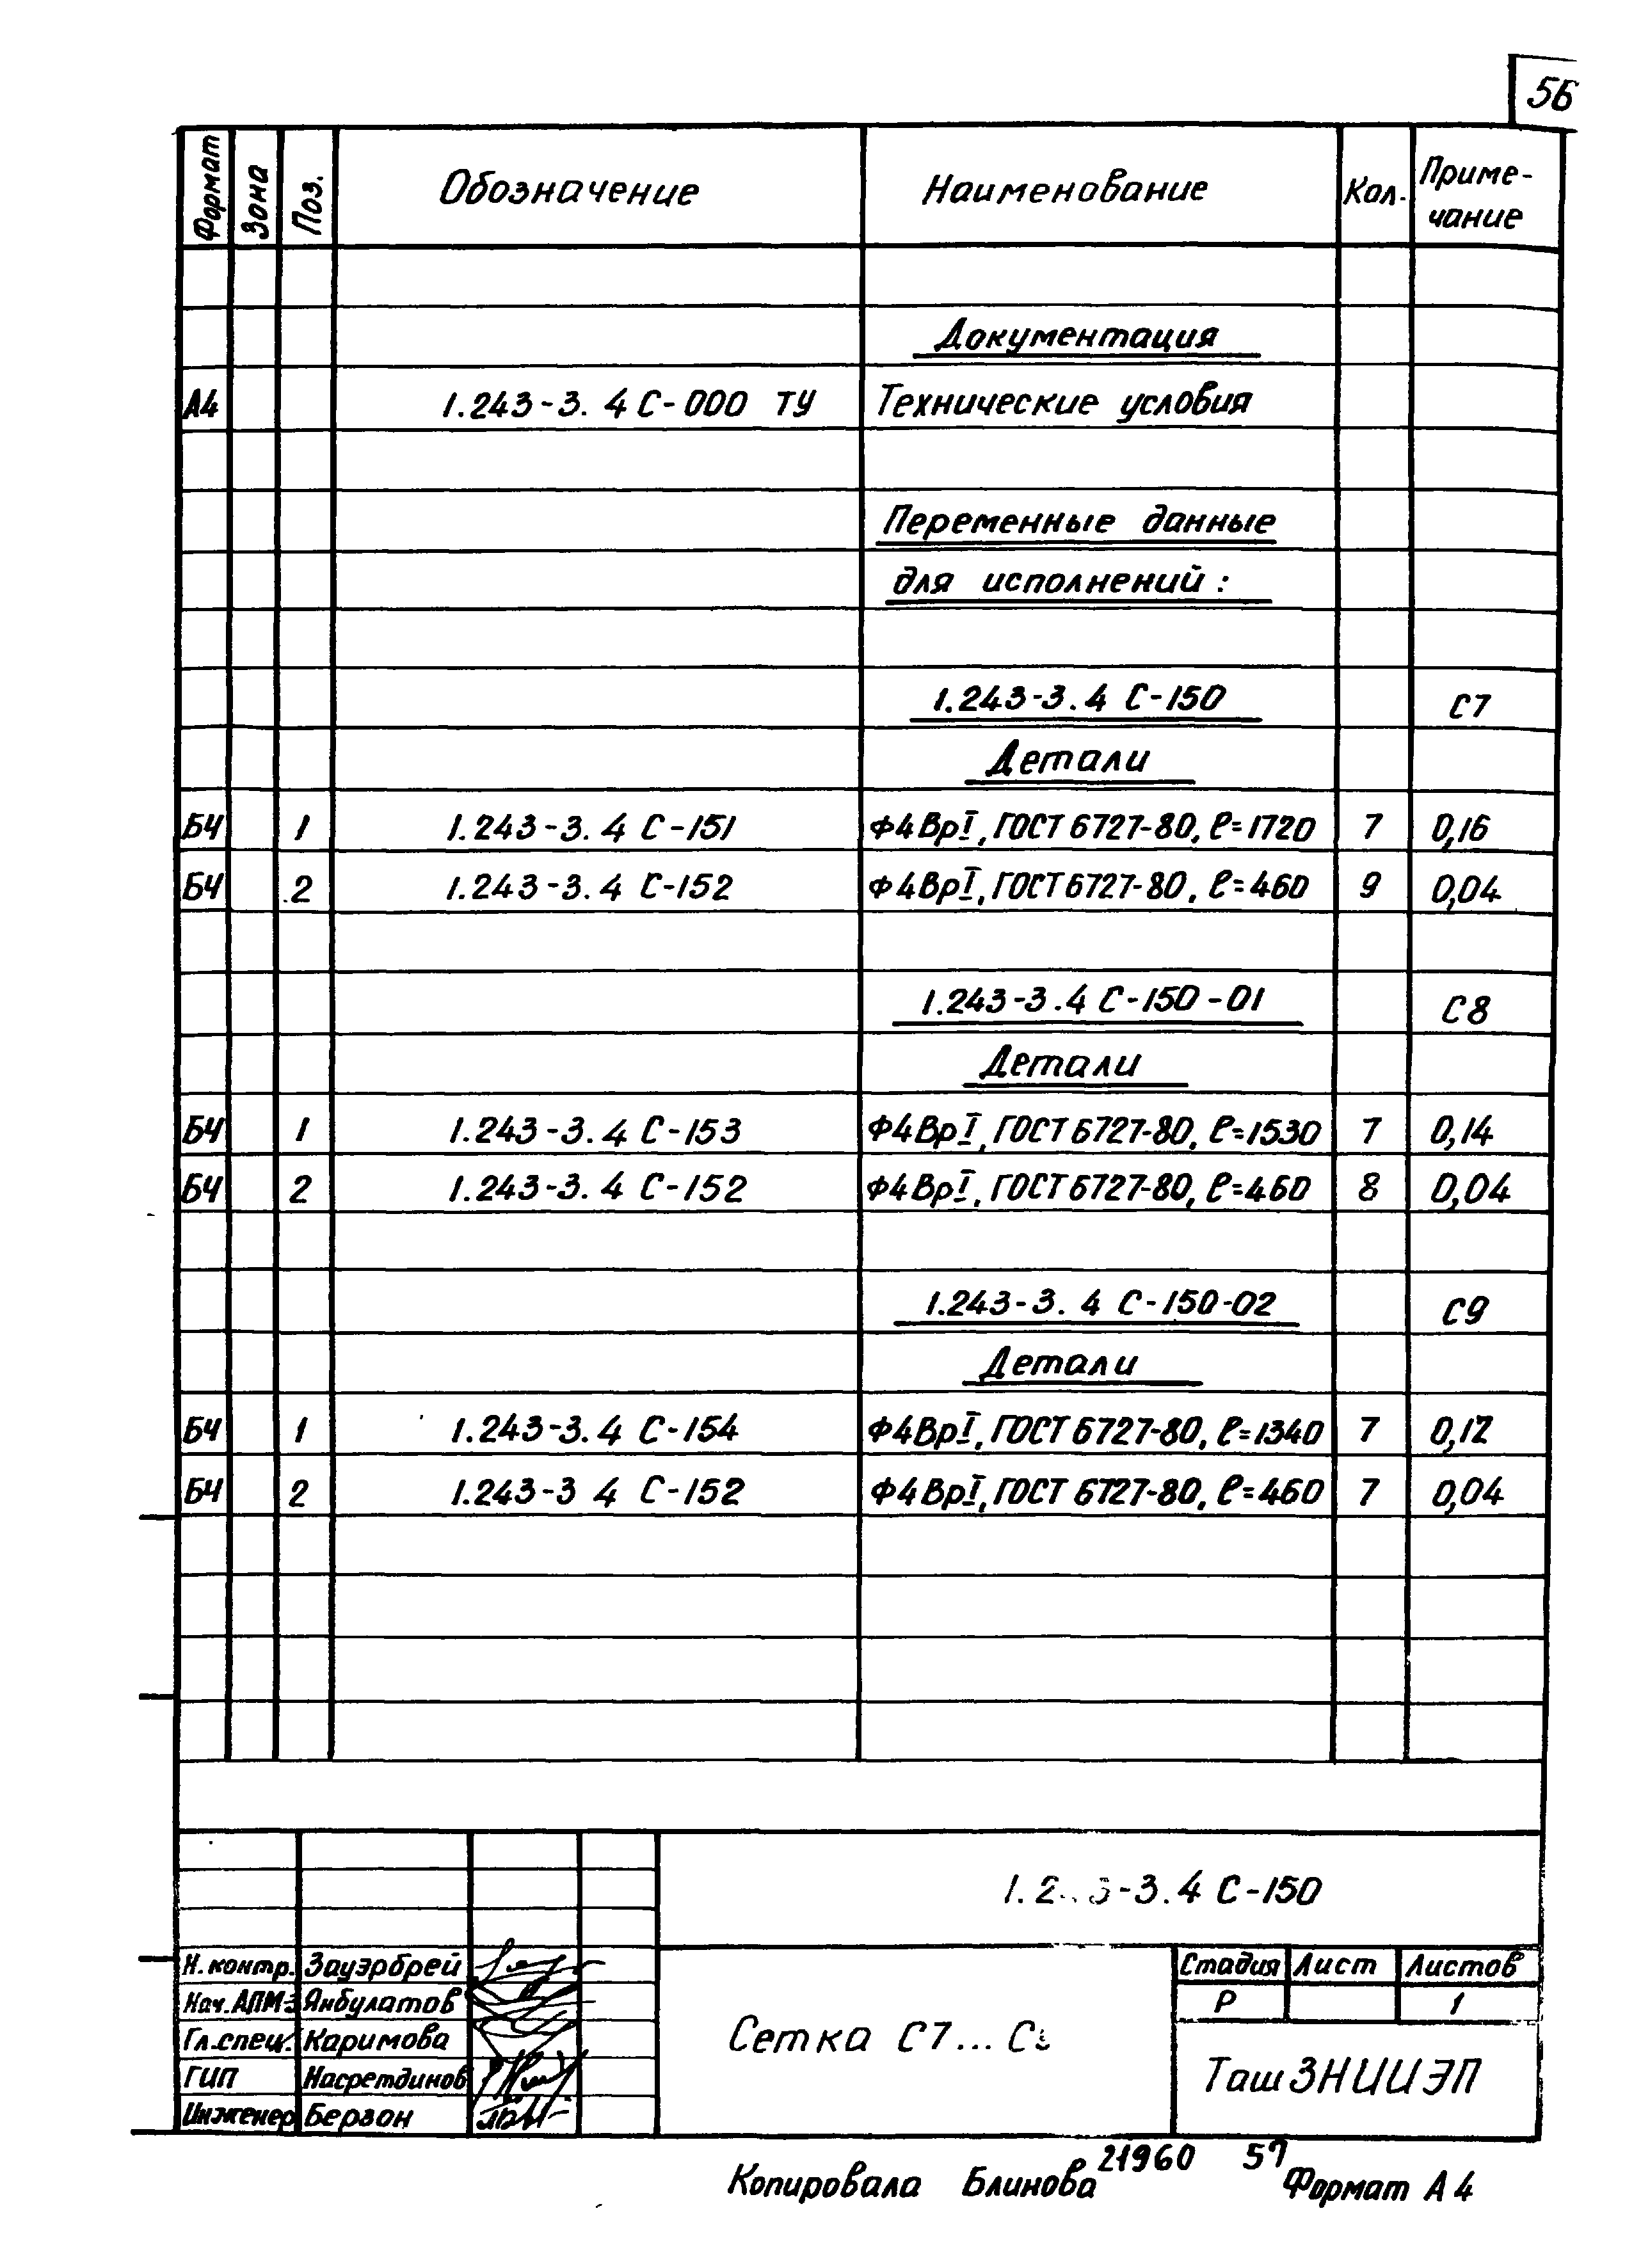 56
Формат Зона Поз. Обозначение Наименование Кол. Приме-
чание
Документация
А4 1.243-3.4 С-000 ТУ Технические условия
Переменные данные
для исполнений:
1.243-3.4 С-150 С7
Детали
БЧ 1 1.243-3.4 С-151 Ф4ВрI, ГОСТ 6727-80, ℓ=1720 7 0,16
БЧ 2 1.243-3.4 С-152 Ф4ВрI, ГОСТ 6727-80, ℓ=460 9 0,04
1.243-3.4 С-150-01 С8
Детали
БЧ 1 1.243-3.4 С-153 Ф4ВрI, ГОСТ 6727-80, ℓ=1530 7 0,14
БЧ 2 1.243-3.4 С-152 Ф4ВрI, ГОСТ 6727-80, ℓ=460 8 0,04
1.243-3.4 С-150-02 С9
Детали
БЧ 1 1.243-3.4 С-154 Ф4ВрI, ГОСТ 6727-80, ℓ=1340 7 0,12
БЧ 2 1.243-3 4 С-152 Ф4ВрI, ГОСТ 6727-80, ℓ=460 7 0,04
-3.4 С-150
Н. контр. Зауэрбрей
Нач. АПМ-3 Янбулатов
Гл. спец. Каримова
ГИП Насретдинов
Инженер Берзон
Сетка С7...
Стадия Лист Листов
Р 1
ТашЗНИИЭП
21960 57
Копировала Блинова Формат А4